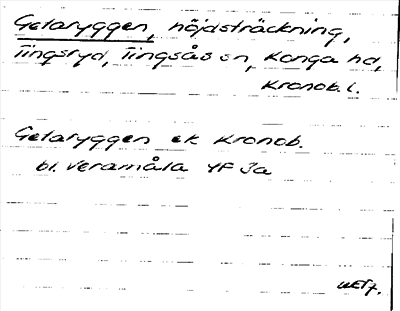 Getaryggen, höjdsträckning,
Tingsryd, Tingsås sn, Konga hd,
Kronob. l.
Getaryggen ek Kronob.
bl. Veramåla 4F 3a